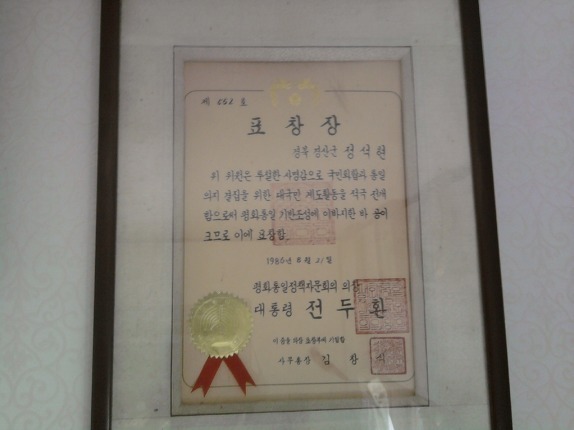 제 662 호
표창장
경북 경산군 정석현
위 위원은 투철한 사명감으로 국민화합과 통일
의지 결집을 위한 대국민 계도활동을 적극 전개
함으로써 평화통일 기반조성에 이바지한 바 공이
크므로 이에 표창함
1986년 월 21일
평화통일정책자문회의 의장
대통령 전두환
이 증을 표창부에 기입함
사무총장 김창식